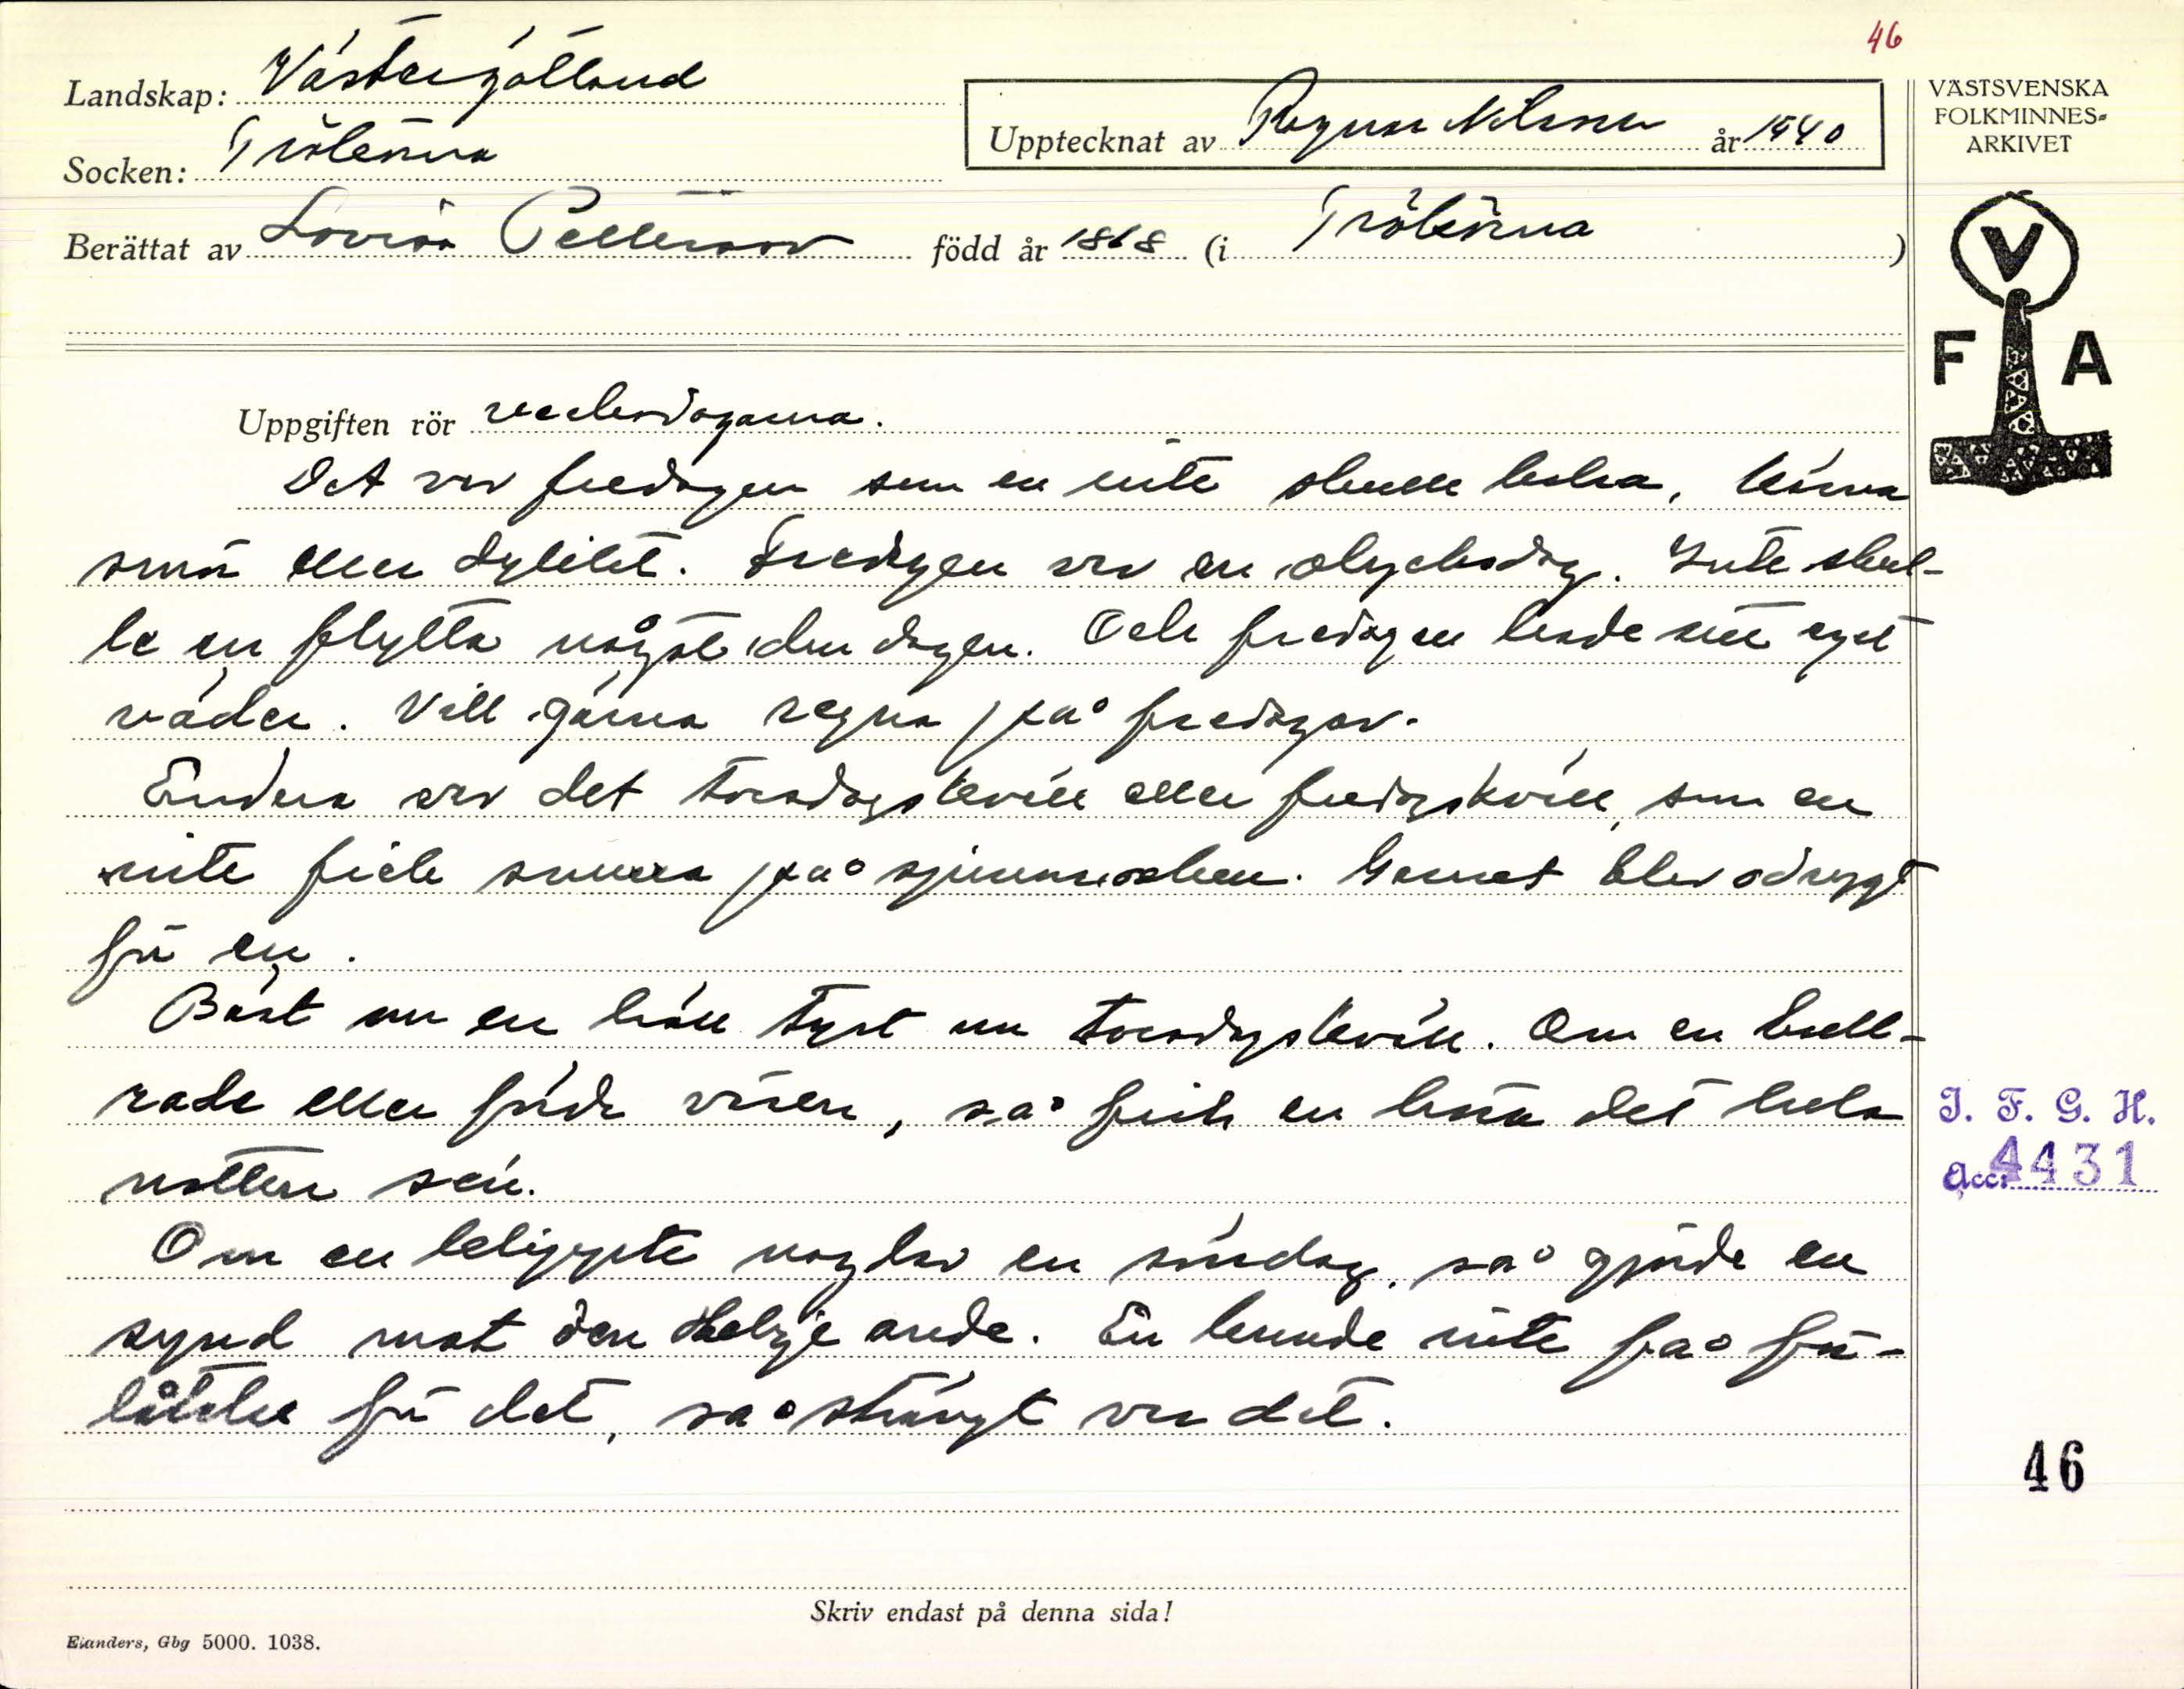 46
Landskap: Västergötland
Socken: Trökörna
Upptecknat av Ragnar Nilsson år 1940
Berättat av Lovisa Pettersson född år 1868 (i Trökörna)
VÄSTSVENSKA
FOLKMINNES=
ARKIVET
V
F A
Uppgiften rör veckodagarna.
Det var fredagen som en inte skulle baka, kärna
smör eller dylikt. Fredagen var en olycksdag. Inte skul-
le en flytta något den dagen. Och fredagen hade sitt eget
väder. Vill gärna regna på fredagar.
Endera var det torsdagskväll eller fredagskväll, som en
inte fick snurra på spinnrocken. Garnet blev odrygt
för en.
Bäst om en höll tyst om torsdagskväll. Om en bull-
rade eller förde väsen, så fick en höra det hela
natten sen.
Om en leklippte naglar en söndag, så gjorde en
synd mot den Helge ande. En kunde inte få för-
låtelse för det, så strängt var det.
I. F. G. H.
Acc. 4431
46
Skriv endast på denna sida!
Elanders, Gbg 5000. 1038.